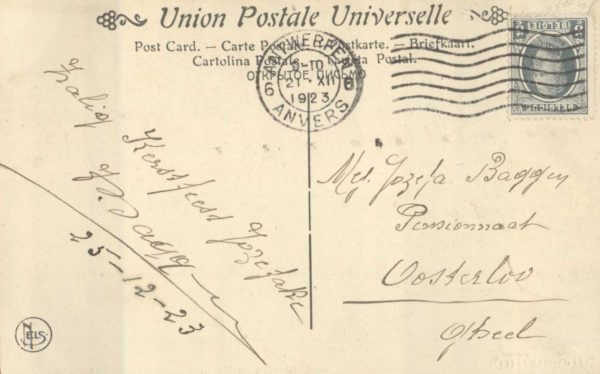 Union Postale Universelle
Post Card. — Carte Postale. — Postkarte. — Briefkaart.
Cartolina Postale. — Tarjeta Postal.
ОТКРЫТОЕ ПИСЬМО
ANTWERPEN
6 6
9-10
21 XII
1923
ANVERS
BELGIË
BELGIQUE
Zalig
Kerstfeest Jozefake
J. Bagg
25-12-23
Mej. Jozefa Baggen
Pensionnaat
Oosterloo
Gheel
NELS